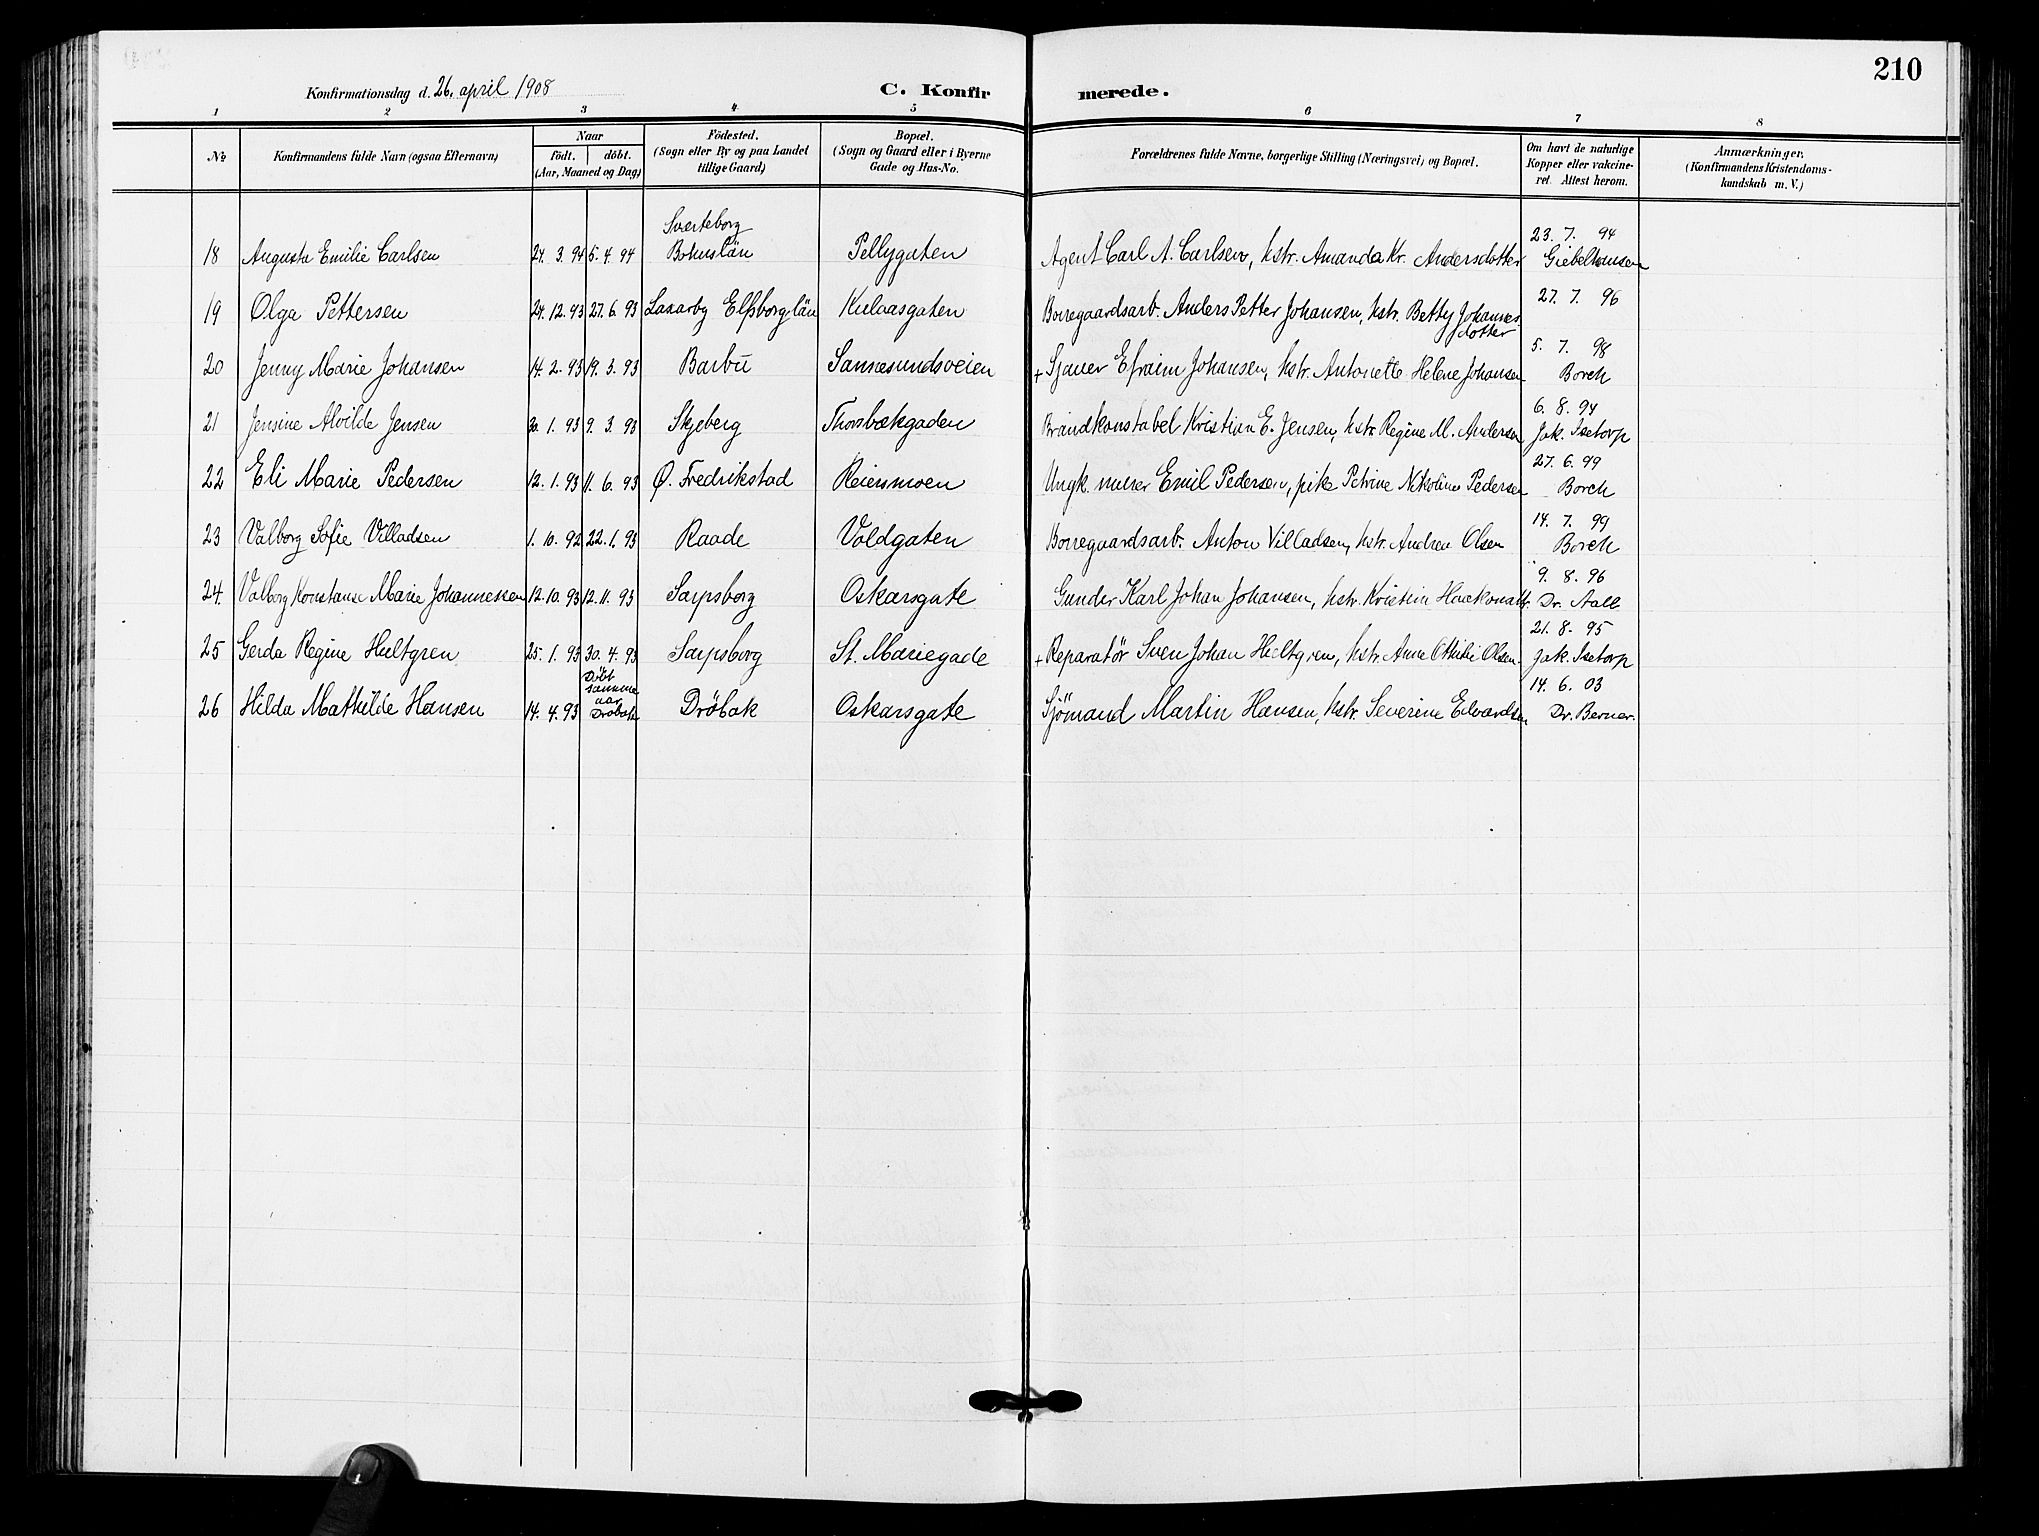 210
Konfirmationsdag d. 26. april 1908
C. Konfir merede.
1 2 3 4 5 6 7 8
№ Konfirmandens fulde Navn (ogsaa Efternavn) Naar födt. döbt. (Aar, Maaned og Dag) Födested. (Sogn eller By og paa Landet tillige Gaard) Bopæl. (Sogn og Gaard eller i Byerne Gade og Hus-No. Forældrenes fulde Navne, borgerlige Stilling (Næringsvei) og Bopæl. Om havt de naturlige Kopper eller vakcineret. Attest herom. Anmærkninger. (Konfirmandens Kristendomskundskab m. V.)
18 Augusta Emilie Carlsen 24. 3. 94 5. 4. 94 Svarteborg Bohuslän Pellygaten Agent Carl A. Carlsen, hstr. Amanda Kr. Andersdotter 23. 7. 94 Giebelhausen
19 Olga Pettersen 24. 12. 93 27. 6. 93 Laxarby Elfsborg län Kulaasgaten Borregaardsarb. Anders Petter Johansen, hstr. Betty Johannesdotter 27. 7. 96
20 Jenny Marie Johansen 14. 2. 93 19. 3. 93 Barbu Sannesundsveien + Sjauer Efraim Johansen, hstr. Antonette Helene Johansen 5. 7. 98 Borch
21 Jensine Alvilde Jensen 30. 1. 93 9. 3. 93 Skjeberg Thorsbækgaden Brandkonstabel Kristian E. Jensen, hstr. Regine M. Andersen 6. 8. 94 Jak. Isetorp
22 Eli Marie Pedersen 12. 1. 93 11. 6. 93 Ø. Fredrikstad Reiersmoen Ungk. murer Emil Pedersen, pike Petrine Nikoline Pedersen 27. 6. 99 Borch
23 Valborg Sofie Villadsen 1. 10. 92 22. 1. 93 Raade Voldgaten Borregaardsarb. Anton Villadsen, hstr. Andrea Olsen 14. 7. 99 Borch
24. Valborg Konstanse Marie Johannessen 12. 10. 93 12. 11. 93 Sarpsborg Oskarsgate Gunder Karl Johan Johansen, hstr. Kristin 9. 8. 96 Dr. Aall
25 Gerda Regine Hultgren 25. 1. 93 30. 4. 93 Sarpsborg St. Mariegade + Reparatör Sven Johan Hultgren, hstr. Anna Othilie Olsen. 21. 8. 95 Jak. Isetorp
26 Hilda Mathilde Hansen 14. 4. 93 Döbt samme aar Dröbak Dröbak Oskarsgate Sjömand Martin Hansen, hstr. Severine Edvardsen 14. 6. 03 Dr. Berner.